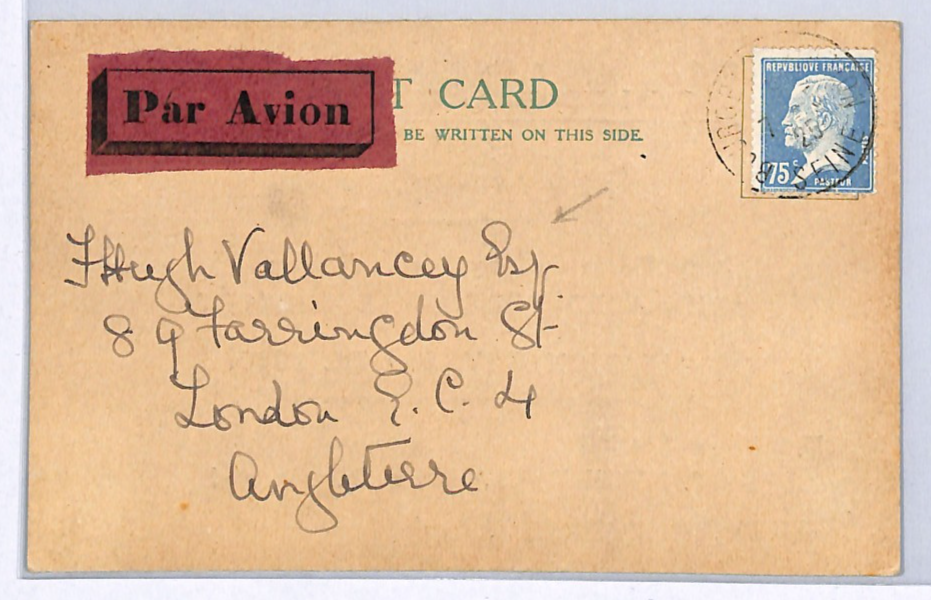 Par Avion
T CARD
BE WRITTEN ON THIS SIDE.
REPVBLIQVE FRANCAISE
75c
PASTEUR
SEINE
F Hugh Vallancey Esq.
89 Farringdon St
London E.C. 4
Angleterre